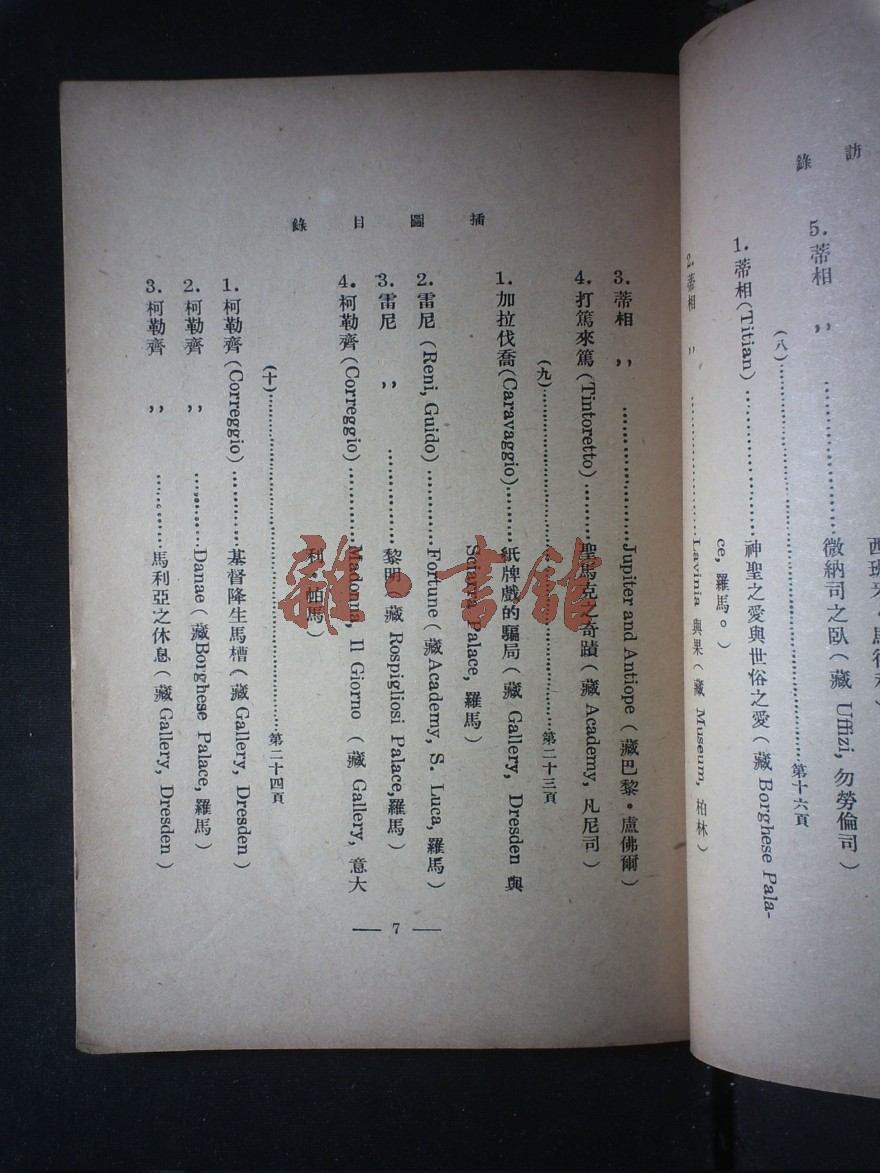 訪 錄
5. 蒂相 ,, ……………… 微納司之臥(藏 Uffizi, 勿勞倫司)
(八)………………第十六頁
1. 蒂相(Titian)………………神聖之愛與世俗之愛(藏 Borghese Pala-
ce, 羅馬。)
2. 蒂相 ,, ………………Lavinia 與果(藏 Museum, 柏林)
插圖目錄
3. 蒂相 ,, ………………Jupiter and Antiope(藏巴黎·盧佛爾)
4. 打篤來篤(Tintoretto)………聖馬克之奇蹟(藏 Academy, 凡尼司)
(九)………………第二十三頁
1. 加拉伐喬(Caravaggio)………紙牌戲的騙局(藏 Gallery, Dresden 與
Sciarra Palace, 羅馬)
2. 雷尼(Reni, Guido)………Fortune(藏Academy, S. Luca, 羅馬)
3. 雷尼 ,, ………黎明(藏 Rospigliosi Palace, 羅馬)
4. 柯勒齊(Correggio)………Madonna, Il Giorno(藏 Gallery, 意大
利·帕馬)
(十)………………第二十四頁
1. 柯勒齊(Correggio)………基督降生馬槽(藏 Gallery, Dresden)
2. 柯勒齊 ,, ………Danae(藏Borghese Palace, 羅馬)
3. 柯勒齊 ,, ………馬利亞之休息(藏 Gallery, Dresden)
— 7 —
雜·書館